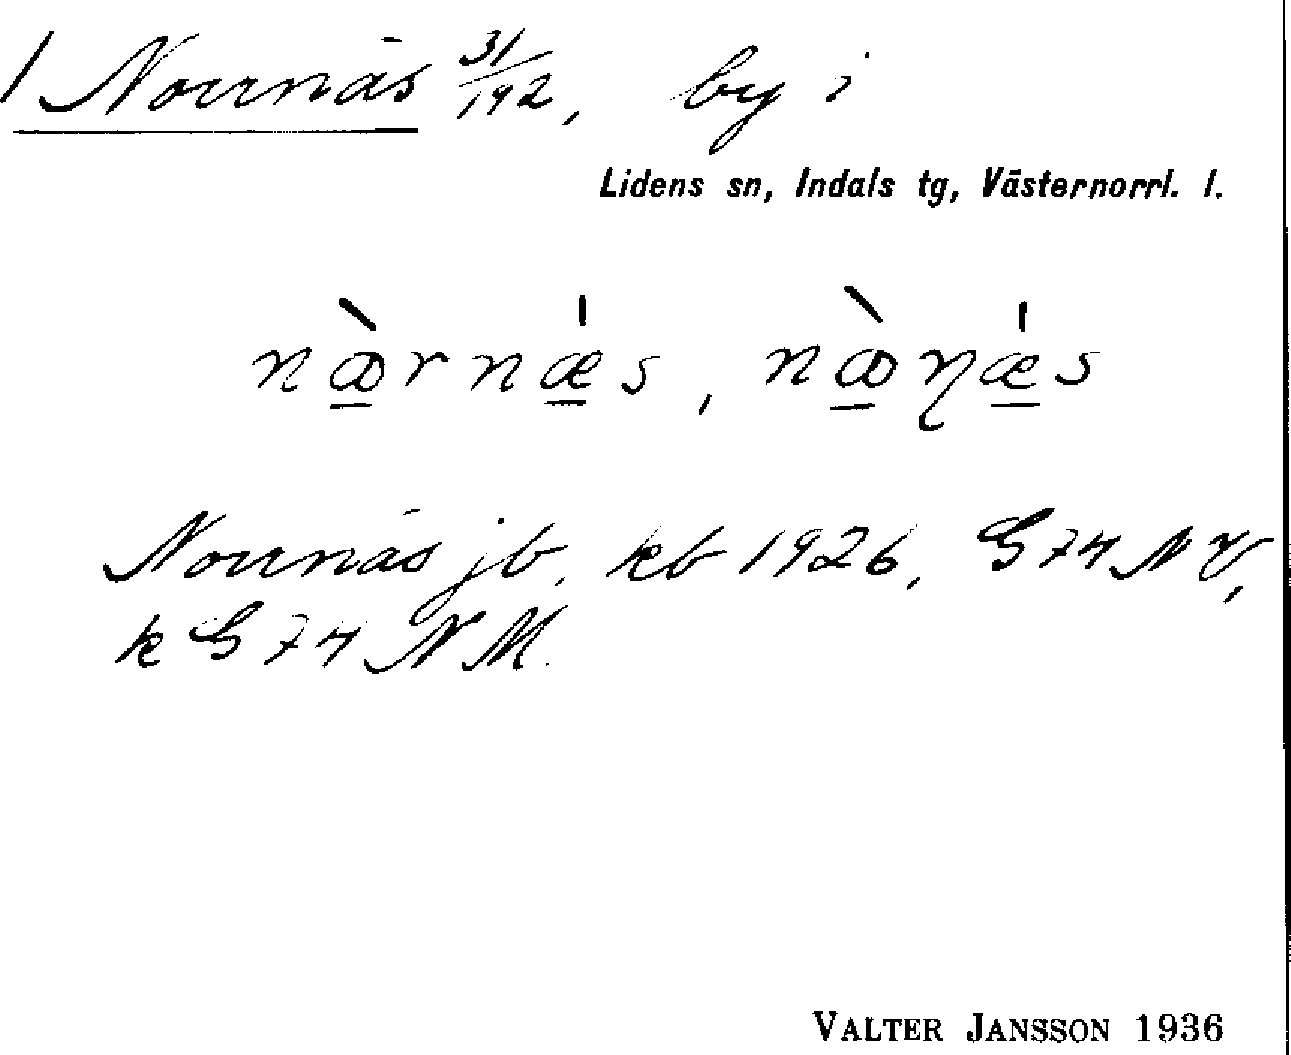 1 Norrnäs 31/192, by i
Lidens sn, Indals tg, Västernorrl. l.
nꝏ̀rnǽs, nꝏ̀ɳǽs
Norrnäs jb, kb 1926, G 74 NV,
k G 74 NM.
VALTER JANSSON 1936